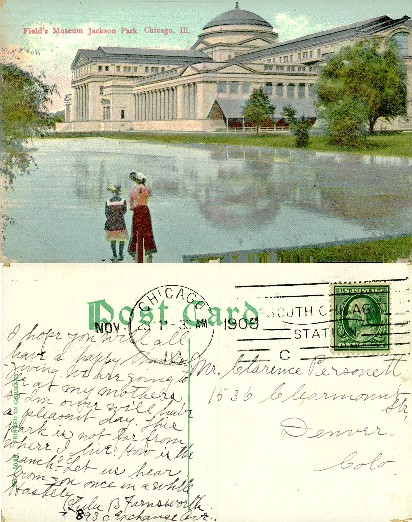 Field's Museum Jackson Park Chicago, Ill.
Post Card
CHICAGO
NOV
3 AM
1909
ILL
SOUTH CHICAGO
STATION
C
I hope you will all
have a happy Thanks
giving. We are going to
eat at my mothers
& Im sure will have
a pleasant day. This
park is not far from
where I live. How is the
ranch? Let us hear
from you once in a while
Hastily
Lulu B Farnsworth
8930 Exchange Ave.
Mr. Clarence Personett
1536 Clearmont
Str,
Denver
Colo.